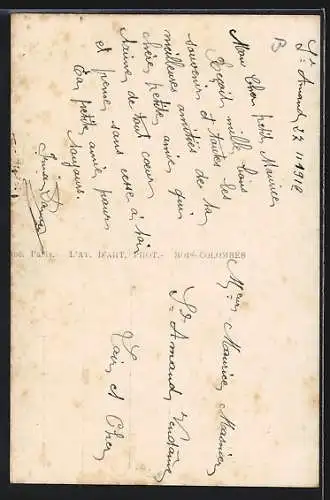 St Amand 22 11 1912
B
Mon Cher petit Maurice
Reçoit mille bons
souvenirs et toutes les
meilleures amitiés de ta
chère petite amie qui
t'aime de tout cœur
et pense sans cesse à toi
Ta petite amie pour
toujours.
L'AT. D'ART. PHOT. - BOIS-COLOMBES
Mr Maurice
St Amand Vendôme
Loir et Cher